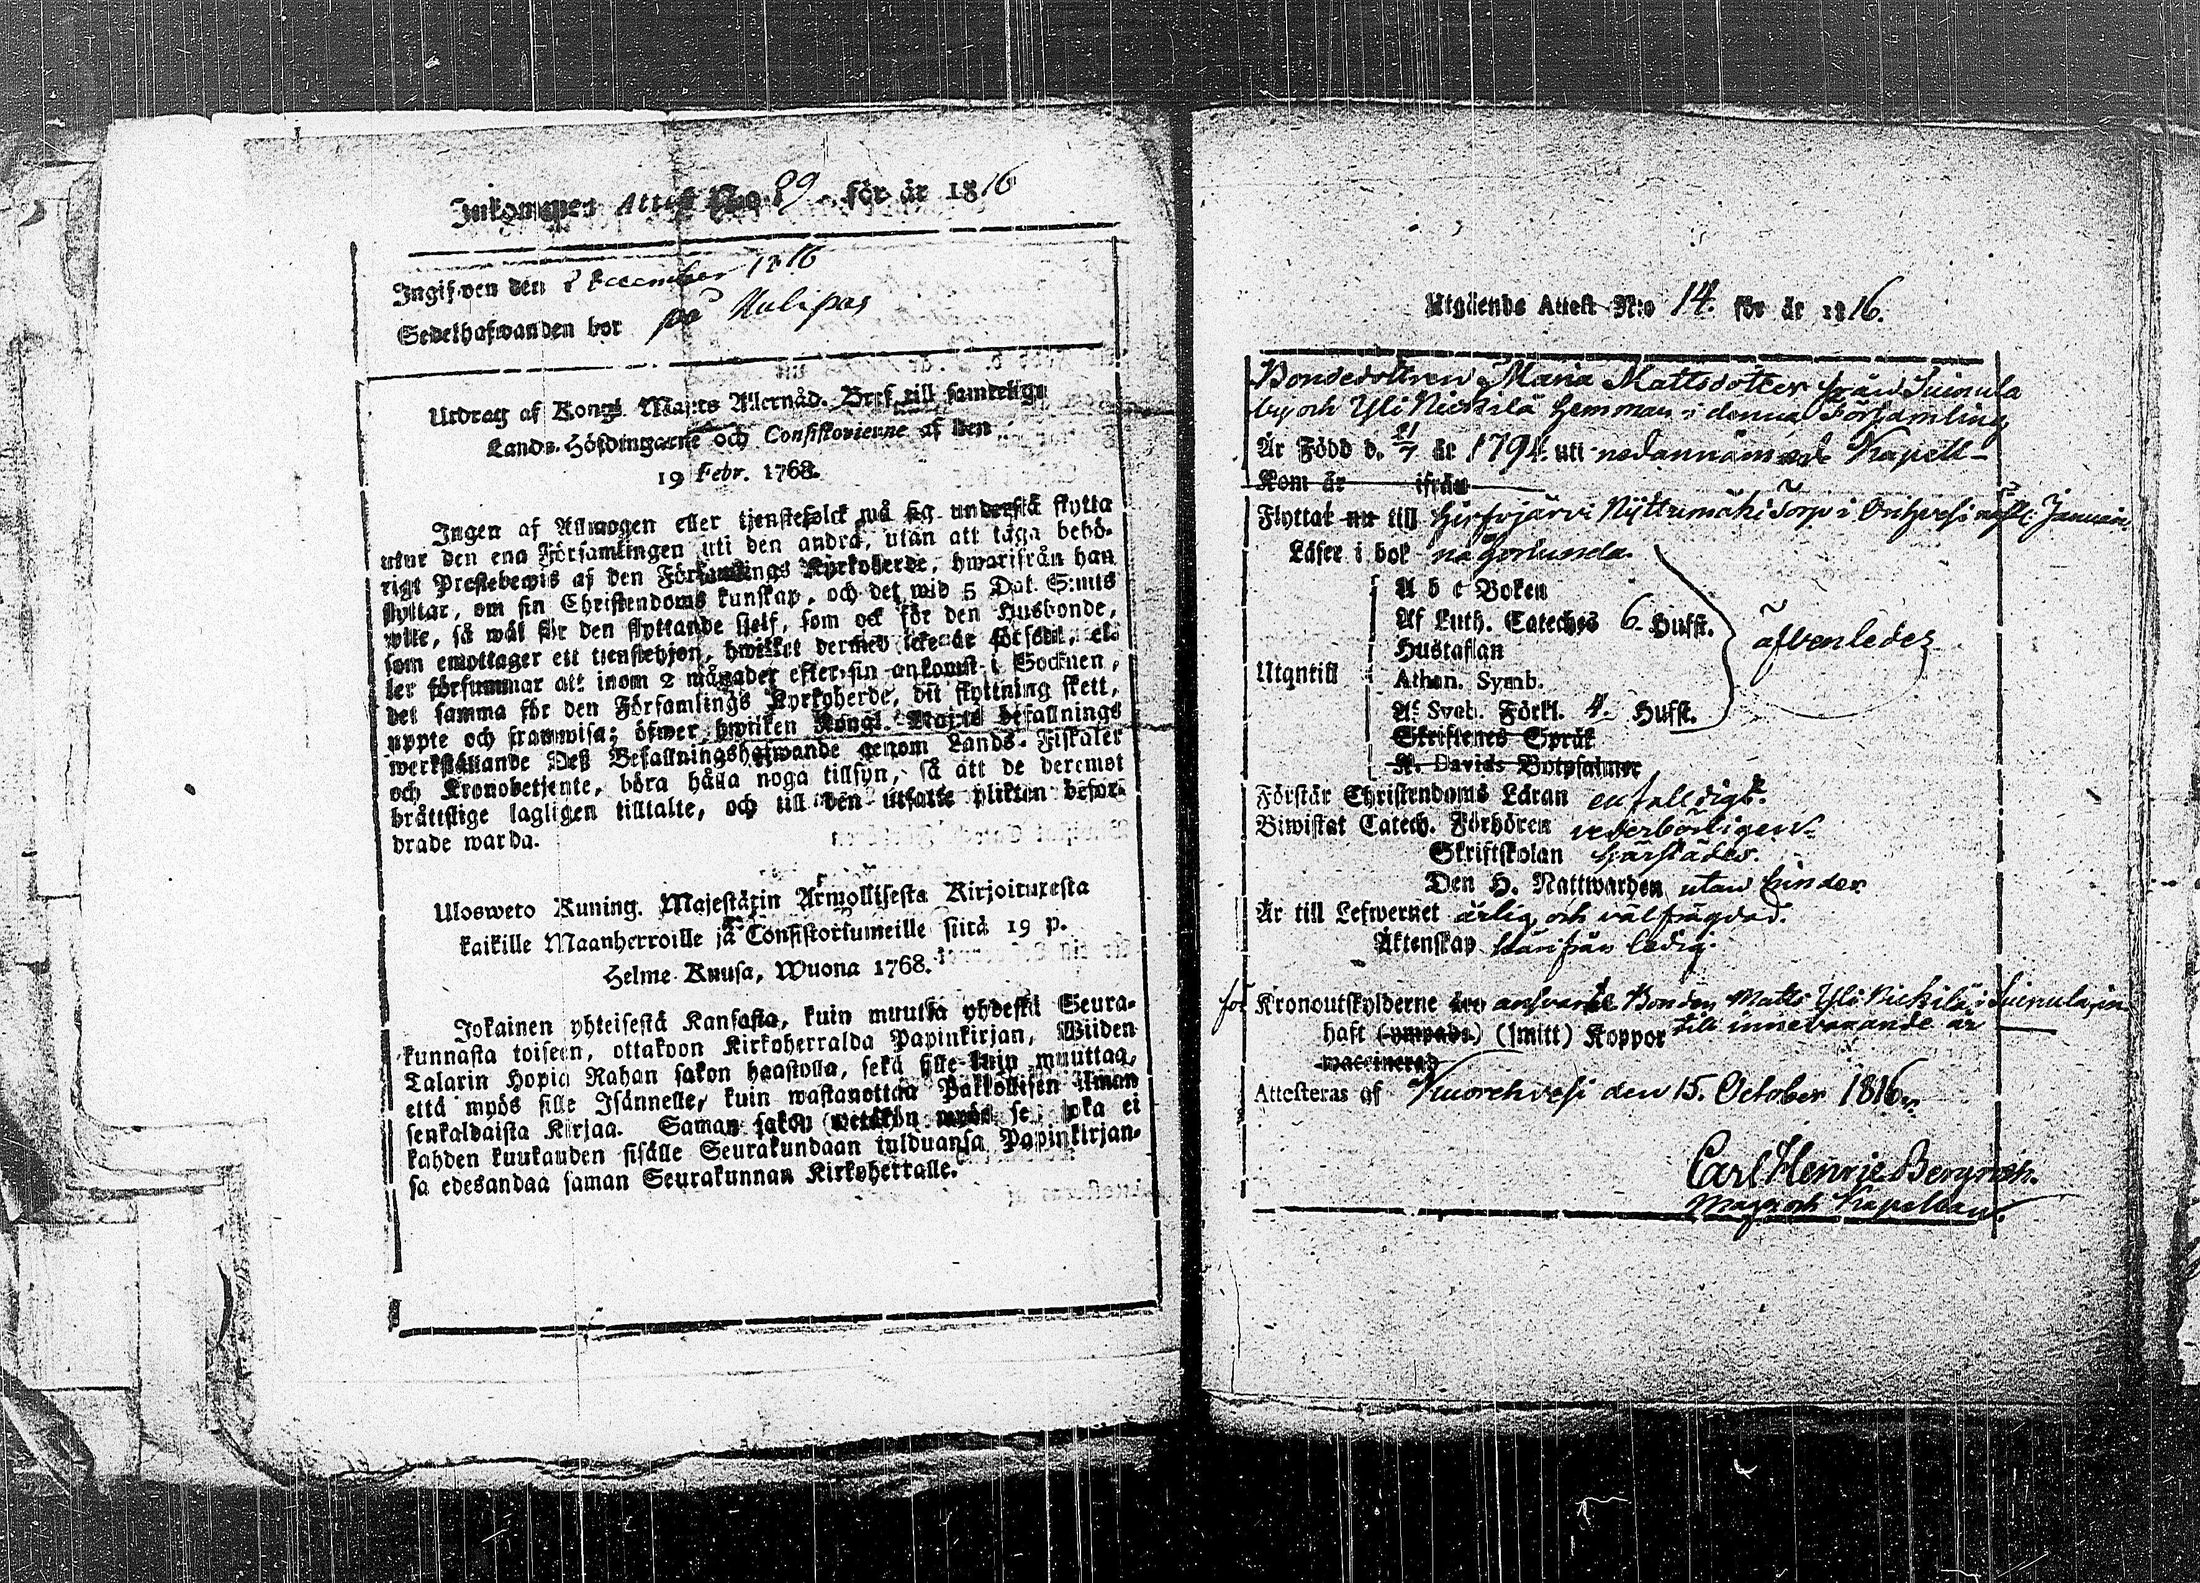 Inkommen Attest N:o 89. för år 1816
Ingifwen den December 1816
Sedelhafwanden bor på Aulipas
Utdrag af Kongl. Maj:ts Allernåd. Bref till samtelige
Lands-Höfdingarne och Consistorierne af den
19 Febr. 1768.
Ingen af Allmogen eller tjenstefolck må sig understå flytta
utur den ena Församlingen uti den andra, utan att taga behö-
rigt Prestebewis af den Församlings Kyrkoherde, hwarifrån han
flyttar, om sin Christendoms kunskap, och det wid 5 Dal. S:mts
wite, så wäl för den flyttande sjelf, som ock för den Husbonde,
som emottager ett tienstehjon, hwilket dermed icke är försedt, el-
ler försummar att inom 2 månader efter sin ankomst i Socknen,
det samma för den Församlings Kyrkoherde, dit flyttning skett,
uppte och framwisa; öfwer hwilken Kongl. Maj:ts befallnings
werkställande Deß Befallningshafwande genom Lands-Fiskaler
och Kronobetjente, böra hålla noga tillsyn, så att de deremot
bråttslige lagligen tilltalte, och till den utsatte plikten befor-
drade warda.
Ulosweto Kuning. Majestätin Armollisesta Kirjoituxesta
kaikille Maanherroille ja Consistoriumeille siitä 19 p.
Helme-Kuusa, Wuona 1768.
Jokainen yhteisestä Kansasta, kuin muutta yhdestä Seura-
kunnasta toiseen, ottakoon Kirkoherralda Papinkirjan, Wiiden
Talarin Hopia Rahan sakon haastolla, sekä sille kuin muuttaa,
että myös sille Isännelle, kuin wastanottaa Palkollisen ilman
senkaldaista Kirjaa. Saman sakon wetäkön myös se, joka ei
kahden kuukauden sisälle Seurakundaan tulduansa Papinkirjan-
sa edesandaa saman Seurakunnan Kirkoherralle.
Utgående Attest N:o 14. för år 1816.
Bondedottren Maria Mattsdotter från Suinula
by och Yli Nickilä hemman i denna Församling
Är Född d. 21/7 år 1794. uti nedannämnde Kapell
Kom år ifrån
Flyttat nu till Hirfvjärvi Nyttimäki Torp i Orihvesi Januari
Läser i bok någorlunda.
A b c Boken
Af Luth. Cateches 6. Hufst.
Hustaflan
äfvenledes
Utantill
Athan. Symb.
Af Sveb. Förkl. 4. Hufst.
Skriftenes Språk
K. Davids Botpsalmer
Förstår Christendoms Läran enfalldigt.
Biwistat Catech. Förhören vederbörligen.
Skriftskolan härstädes.
Den H. Nattwarden utan hinder
Är till Lefwernet ärlig och välfrägdad.
Äktenskap härifrån ledig.
för Kronoutskylderne äro ansvarar Bonden Matts Yli Nickilä i Suinula in
till innevarande år
haft (ympade) (smitt) Koppor
waccinerad
Attesteras af Kuorehvesi den 15. October 1816.
Carl Henric Bergroth.
Mag. och Kapellan.